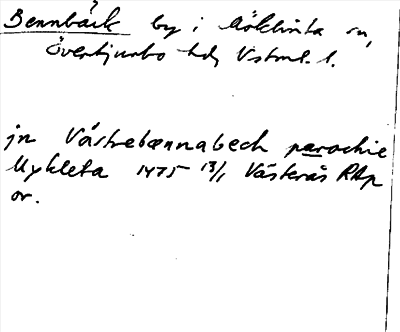 Bennbäck by i Möklinta sn,
Övertjurbo hd, Vstml. l.
jn Västrebænnabech parochie
Mykleta 1475 13/1 Västerås RAp
or.